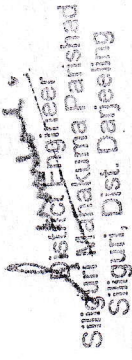 District Engineer
Siliguri Mahakuma Parishad
Siliguri, Dist. Darjeeling